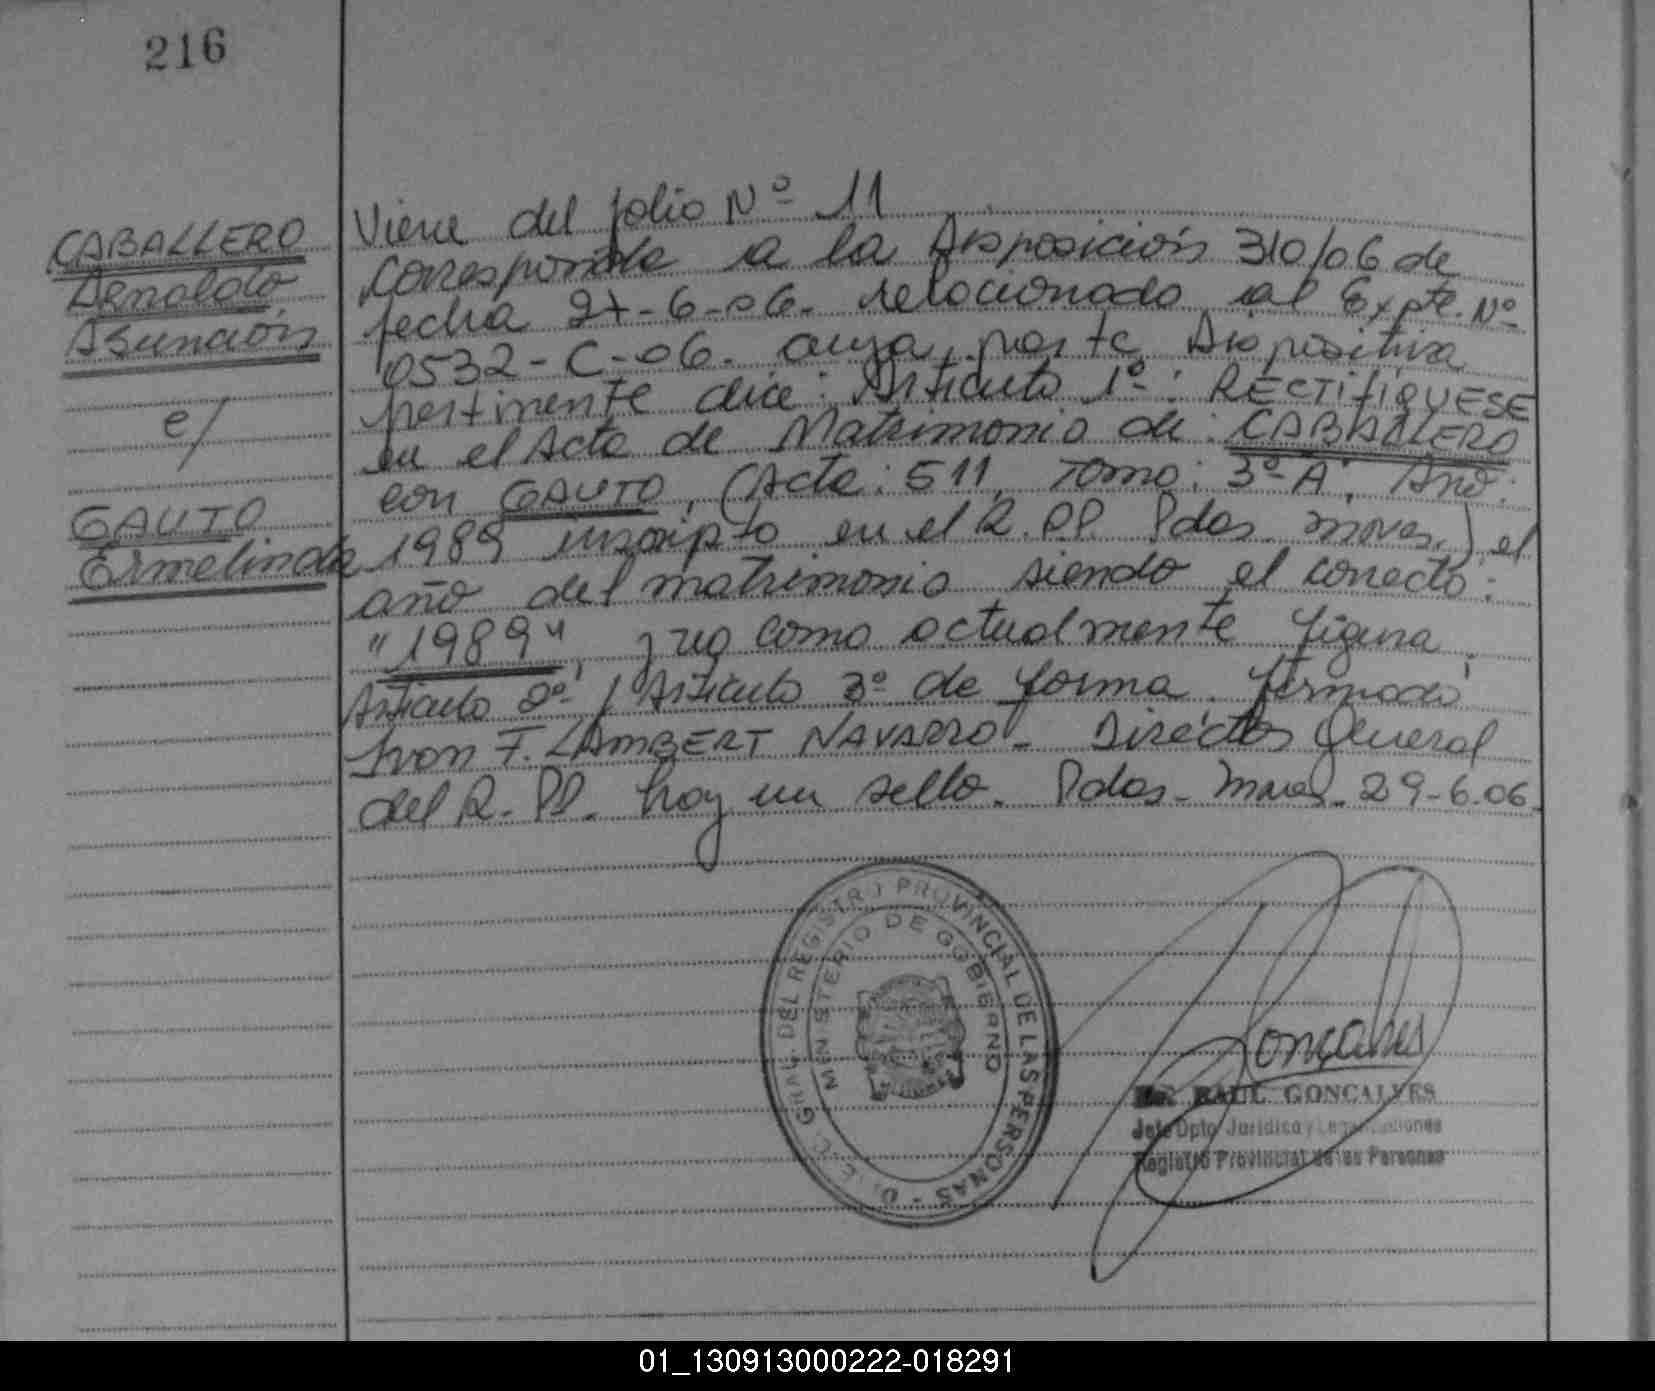 216
CABALLERO
Arnaldo
Asunción
c/
GAUTO
Ermelinda
Viene del folio Nº 11
Corresponde a la Disposición 310/06 de
fecha 27-6-06. relacionado al Expte. Nº
0532-C-06. cuya parte Dispositiva
pertinente dice: Articulo 1º: RECTIFIQUESE
en el Acta de Matrimonio de: CABALLERO
con GAUTO, (Acta: 511, Tomo: 3º A, Año:
1989 inscripto en el R.P.P. Pdas. Mnes.) el
año del matrimonio siendo el correcto:
"1989", y no como actualmente figura.
Articulo 2º / Articulo 3º de forma. firmado
Ivon F. LAMBERT NAVARRO - Director General
del R.PP. hay un sello. Pdas- Mnes- 29-6-06.
DIREC. GRAL. DEL REGISTRO PROVINCIAL DE LAS PERSONAS
MINISTERIO DE GOBIERNO
Goncalves
RAUL GONCALVES
Jefe Dpto Jurídico y
Registro Provincial de las Personas
01_130913000222-018291